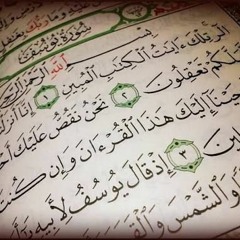 سُورَةُ يُوسُفَ
بِسْمِ ٱللَّهِ ٱلرَّحْمَٰنِ
الٓر تِلْكَ ءَايَٰتُ ٱلْكِتَٰبِ ٱلْمُبِينِ ۝ إِنَّآ أَنزَ
لَّكُمْ تَعْقِلُونَ ۝ نَحْنُ نَقُصُّ عَلَيْكَ أَحْ
حَيْنَآ إِلَيْكَ هَٰذَا ٱلْقُرْءَانَ وَإِن كُنتَ
لِينَ ۝ إِذْ قَالَ يُوسُفُ لِأَبِيهِ
وَٱلشَّمْسَ وَٱلْقَمَرَ